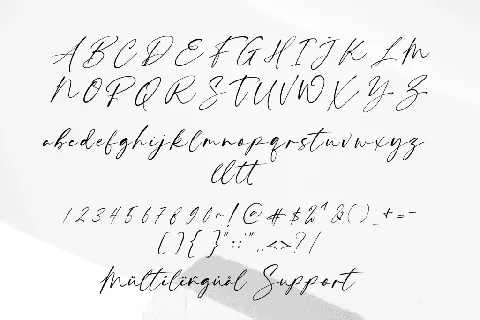 A B C D E F G H I J K L M
N O P Q R S T U V W X Y Z
a b c d e f g h i j k l m n o p q r s t u v w x y z
ll tt
1 2 3 4 5 6 7 8 9 0 ~ ! @ # $ % ^ & ( ) _ + = -
[ ] { } " : ; ' " , . < > ? / |
Mültilïngüöl Support